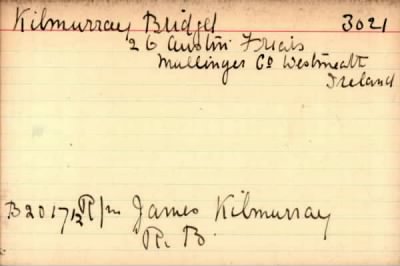 Kilmurray Bridget 3021
26 Austin Friars
Mullingar Co Westmeath
Ireland
B20171/2 R/m James Kilmurray
R. B.